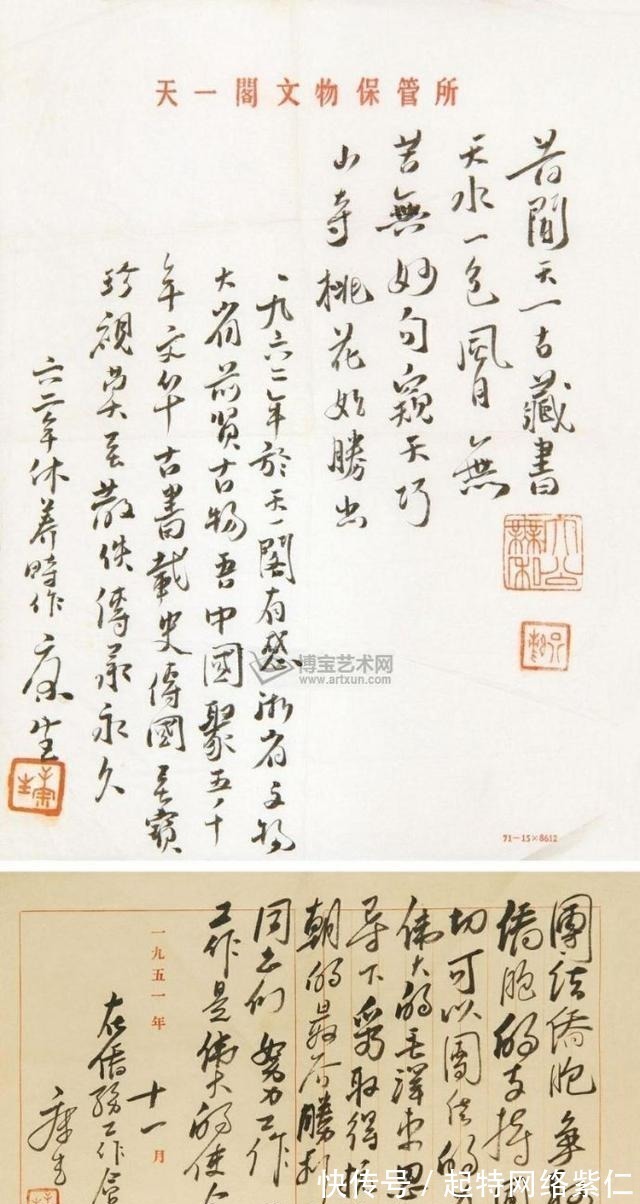 天一閣文物保管所
昔聞天一古藏書
天水一色風月無
苦無妙句窺天巧
山寺桃花始勝出
一九六二年於天一閣有感浙省文物
大省前賢古物吾中國聚五千
年文華古書載史傳國之寶
珍視莫至散佚傳承永久
六二年休養時作康生
康生
博宝艺术网
www.artxun.com
71-15×8612
團结僑胞爭
僑胞的支持
切可以團结的
偉大的毛澤東思
导下爭取得
朝的最后勝利
同志们努力工作
工作是偉大的使命
一九五一年十一月
在僑務工作會
康生
快传号/起特网络紫仁